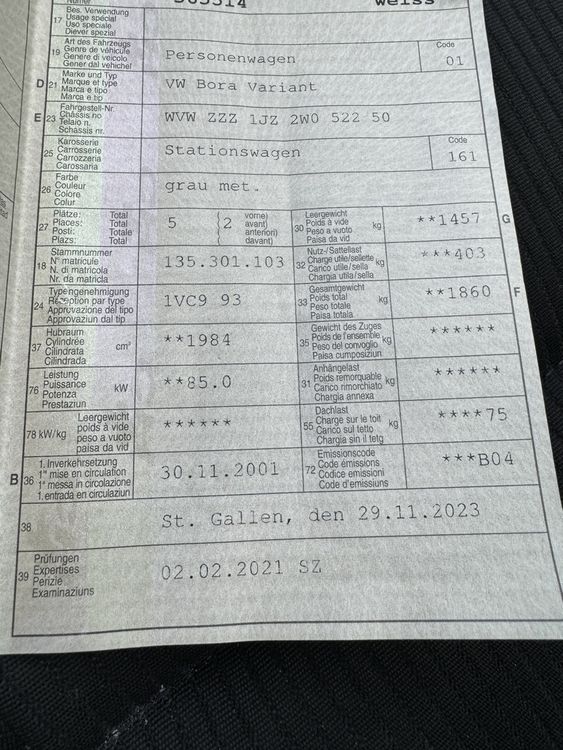 Nummer
weiss
17 Bes. Verwendung
Usage spécial
Uso speciale
Diever spezial
19 Art des Fahrzeugs
Genre de véhicule
Genere di veicolo
Gener dal vehichel
Personenwagen
Code
01
D 21 Marke und Typ
Marque et type
Marca e tipo
Marca e tip
VW Bora Variant
E 23 Fahrgestell-Nr.
Châssis no
Telaio n.
Schassis nr.
WVW ZZZ 1JZ 2W0 522 50
25 Karosserie
Carrosserie
Carrozzeria
Carossaria
Stationswagen
Code
161
26 Farbe
Couleur
Colore
Colur
grau met.
27 Plätze: Total
Places: Total
Posti: Totale
Plazs: Total
5 {2 vorne)
avant)
anteriori)
davant)
30 Leergewicht
Poids à vide
Peso a vuoto
Paisa da vid
kg
**1457
G
18 Stammnummer
N° matricule
N. di matricola
Nr. da matricla
135.301.103
32 Nutz-/Sattellast
Charge utile/sellette
Carico utile/sella
Chargia utila/sella
kg
***403
24 Typengenehmigung
Réception par type
Approvazione del tipo
Approvaziun dal tip
1VC9 93
33 Gesamtgewicht
Poids total
Peso totale
Paisa totala
kg
**1860
F
37 Hubraum
Cylindrée
Cilindrata
Cilindrada
cm³
**1984
35 Gewicht des Zuges
Poids de l'ensemble
Peso del convoglio
Paisa cumposiziun
kg
******
76 Leistung
Puissance
Potenza
Prestaziun
kW
**85.0
31 Anhängelast
Poids remorquable
Carico rimorchiato
Chargia annexa
kg
******
78 kW/kg
Leergewicht
poids à vide
peso a vuoto
paisa da vid
******
55 Dachlast
Charge sur le toit
Carico sul tetto
Chargia sin il tetg
kg
****75
B 36 1. Inverkehrsetzung
1re mise en circulation
1a messa in circolazione
1. entrada en circulaziun
30.11.2001
72 Emissionscode
Code émissions
Codice emissioni
Code d'emissiuns
***B04
38
St. Gallen, den 29.11.2023
39 Prüfungen
Expertises
Perizie
Examinaziuns
02.02.2021 SZ